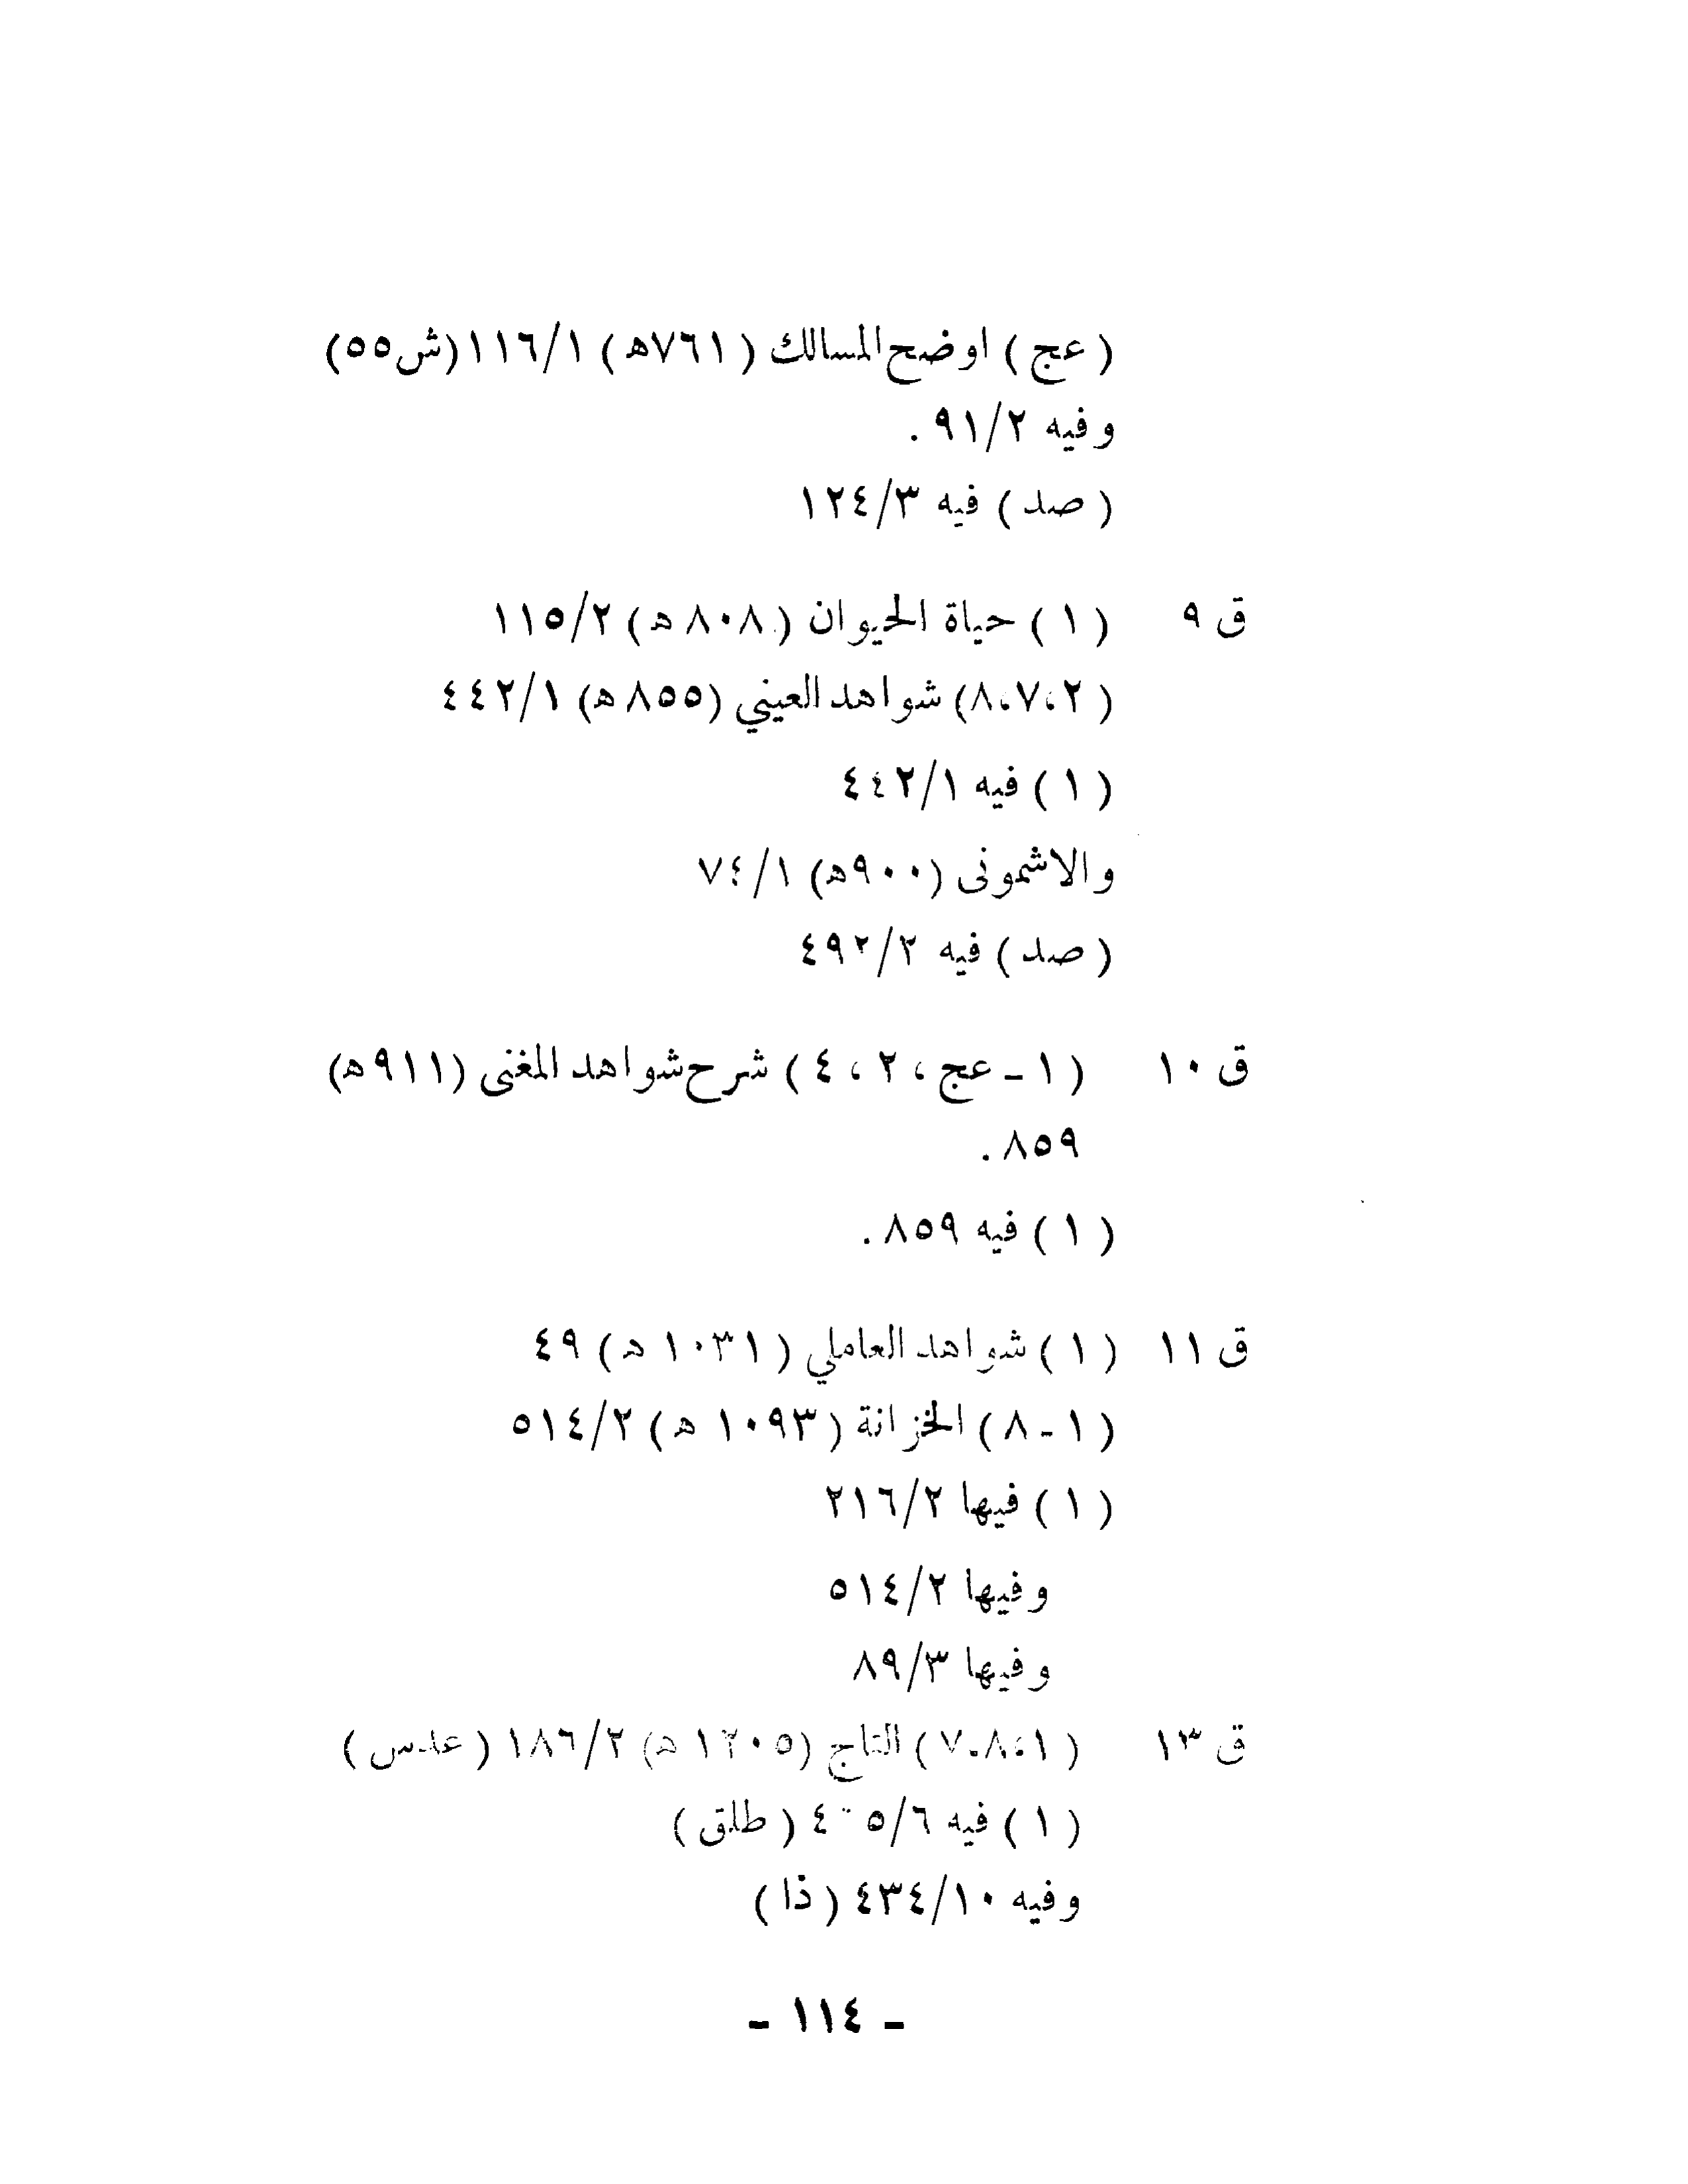 ( عج ) اوضح المسالك ( ٧٦١ه ) ١١٦/١(ش٥٥)
وفيه ٩١/٢ .
( صد ) فيه ١٢٤/٣
ق ٩ ( ١ ) حياة الحيوان (٨٠٨ ه ) ١١٥/٢
( ٨،٧،٢) شواهد العيني (٨٥٥ ه) ٤٤٢/١
( ١ ) فيه ٤٤٢/١
والاشمونى (٩٠٠ه) ٧٤/١
( صد ) فيه ٤٩٢/٢
ق ١٠ ( ١ ـ عج ، ٢ ، ٤ ) شرح شواهد المغنى (٩١١ ه)
٨٥٩ .
( ١ ) فيه ٨٥٩ .
ق ١١ ( ١ ) شواهد العاملي ( ١٠٣١ ه ) ٤٩
( ١ ـ ٨ ) الخزانة ( ١٠٩٣ ه ) ٥١٤/٢
( ١ ) فيها ٢١٦/٢
وفيها ٥١٤/٢
وفيها ٨٩/٣
ق ١٣ ( ١،٨ـ٧ ) التاج (١٢٠٥ ه) ١٨٦/٢ ( عدس )
( ١ ) فيه ( طلق )
وفيه ٤٣٤/١٠ ( ذا )
ـ ١١٤ ـ